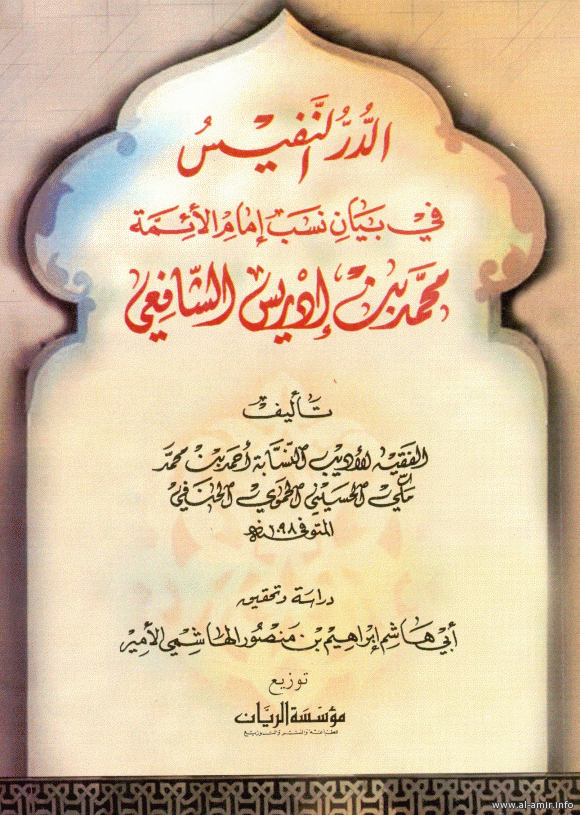 الدُّرُّ النَّفِيسُ
فِي بَيَانِ نَسَبِ إِمَامِ الأَئِمَّة
محمَّد بن إدريس الشَّافِعي
تأليف
الفقيه الأديب النسَّابة أحمد بن محمَّد
مكّي الحسيني الحموي الحنفي
المتوفى سنة ١٠٩٨هـ
دراسة وتحقيق
أبي هاشم إبراهيم بن منصور الهاشمي الأمير
توزيع
مؤسَّسَة الريَّان
للطباعة والنشر والتوزيع
www.al-amir.info